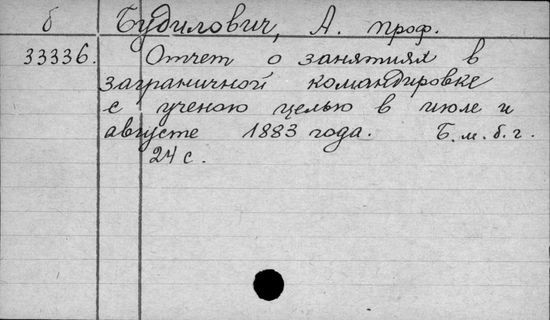 б Будилович, А. проф.
33336. Отчет о занятиях в
заграничной командировке
с ученою целью в июле и
августе 1883 года. Б.м.б.г.
24 с.